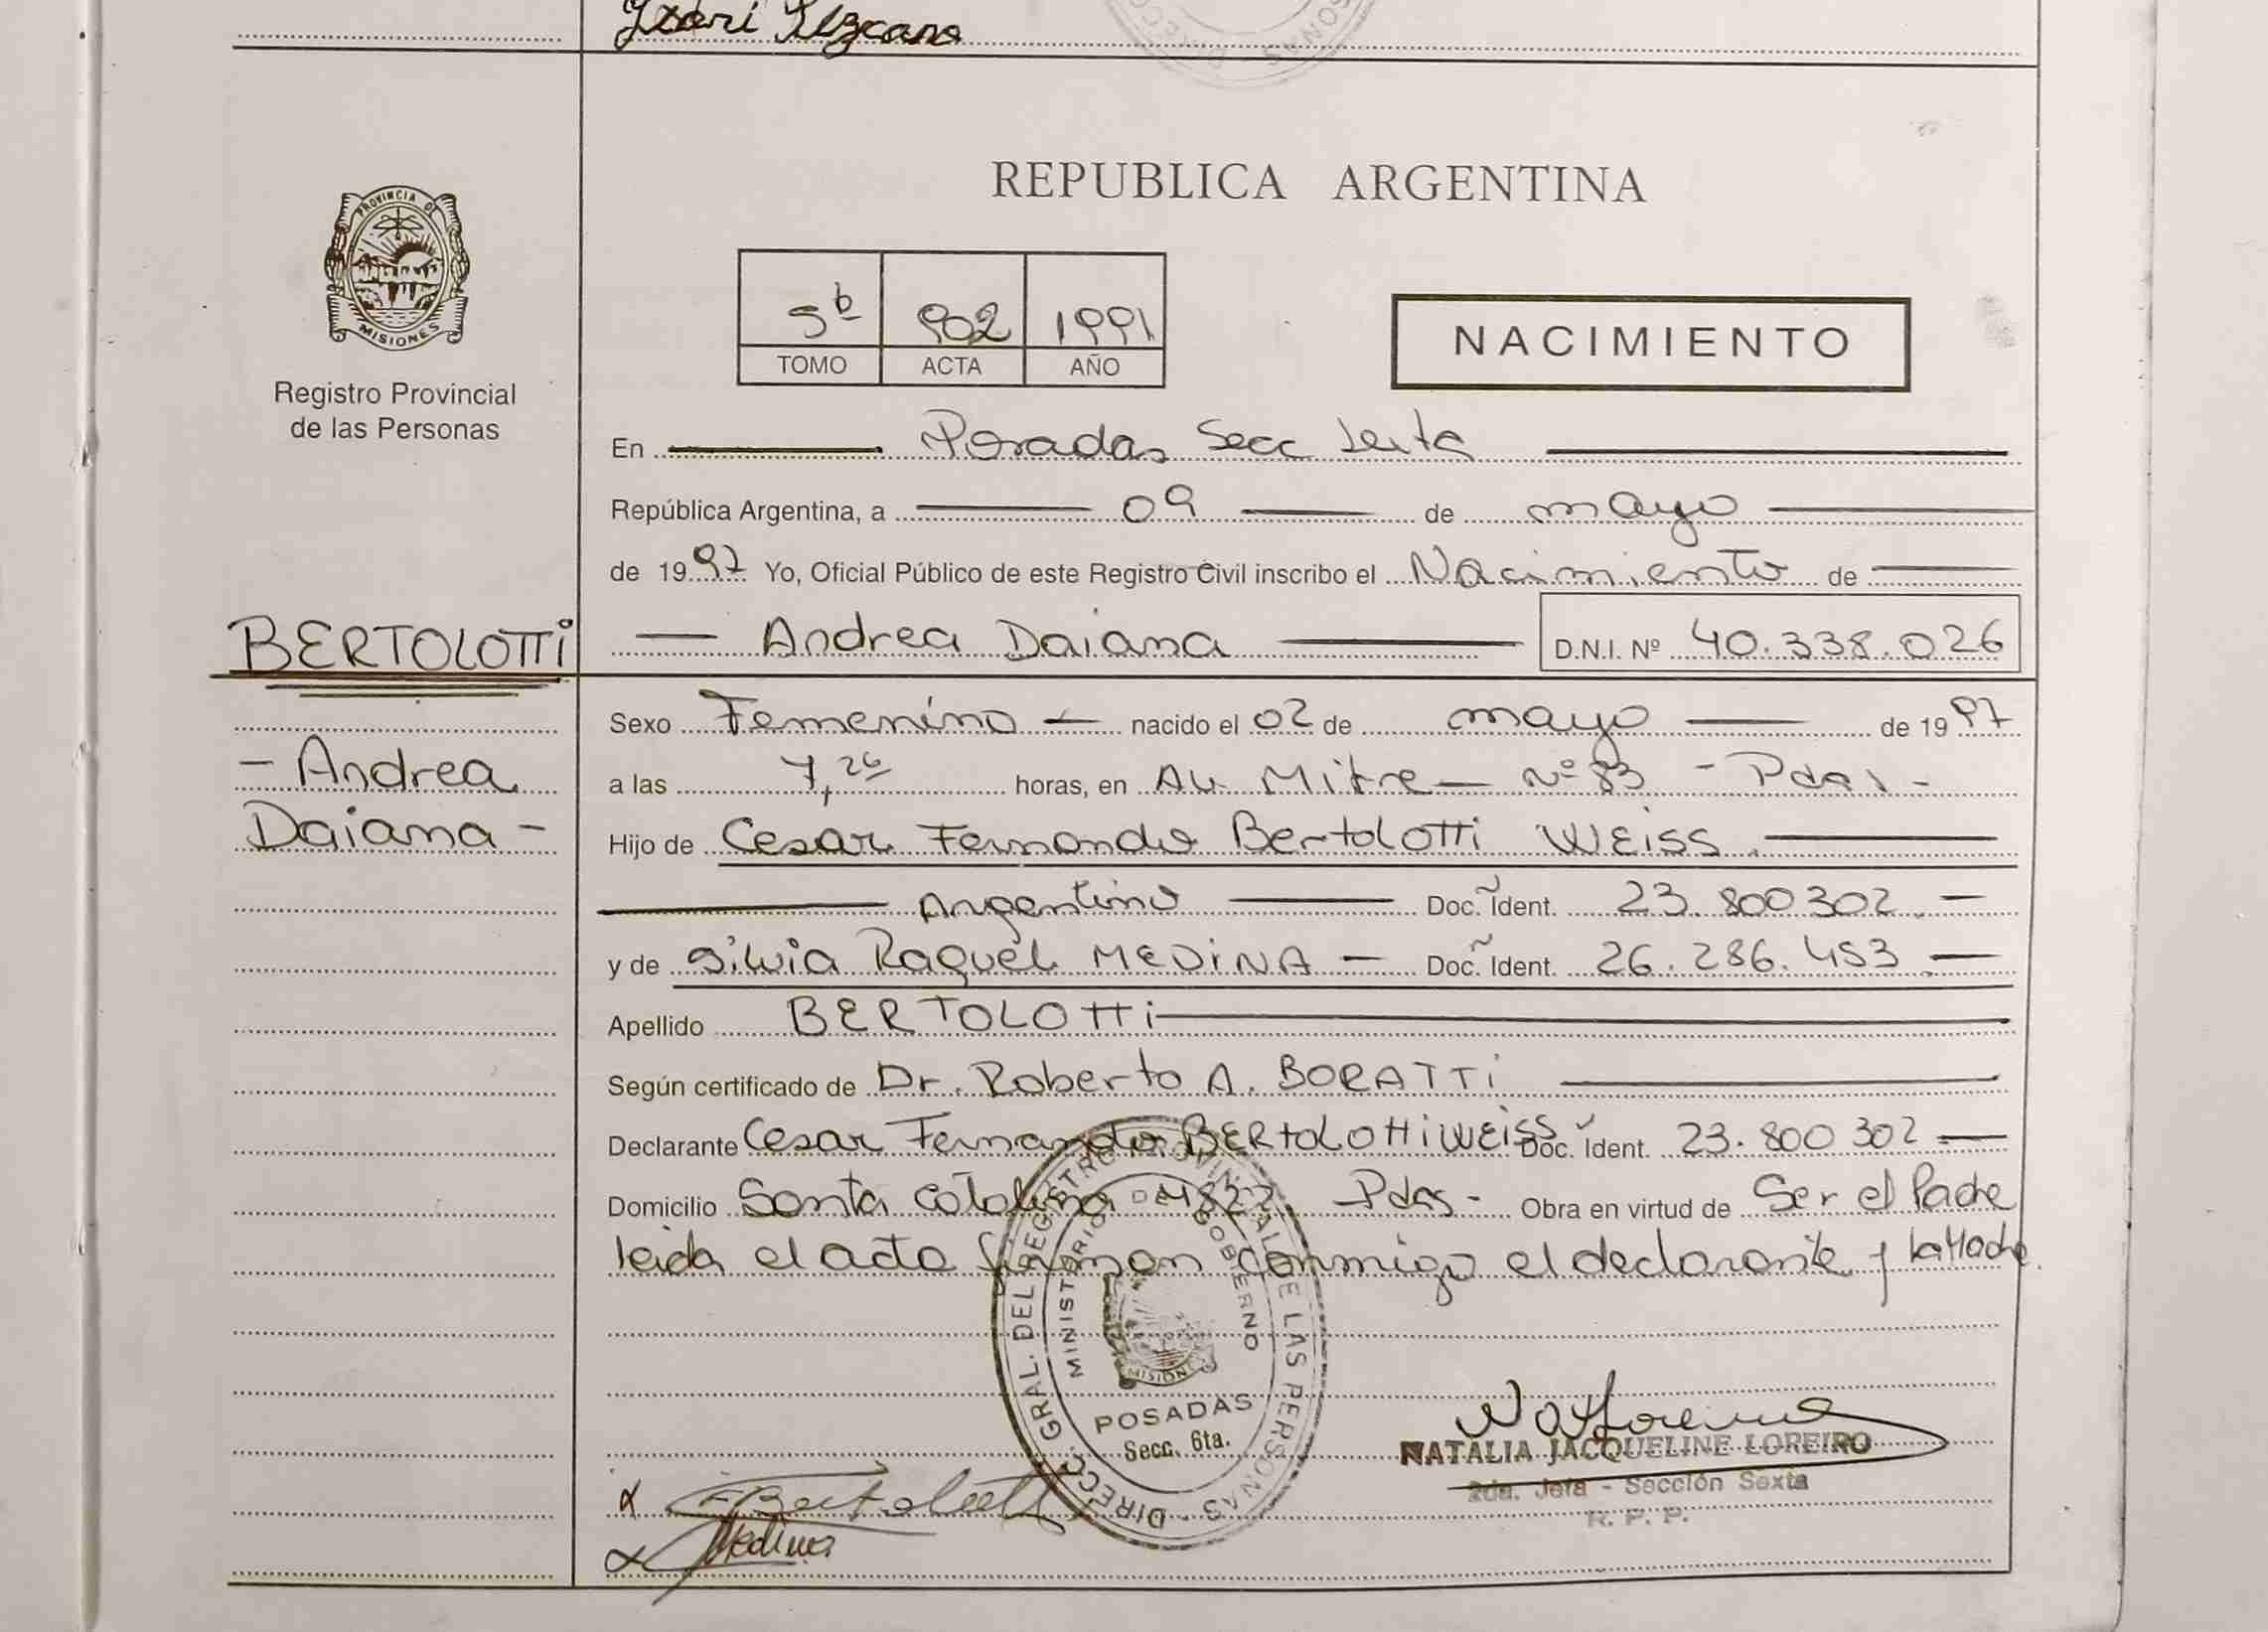 PROVINCIA DE
MISIONES
Registro Provincial
de las Personas
BERTOLOTTI
- Andrea
Daiana -
REPUBLICA ARGENTINA
5b 902 1991
TOMO ACTA AÑO
NACIMIENTO
En Posadas Secc Sexta
República Argentina, a 09 de mayo
de 1997 Yo, Oficial Público de este Registro Civil inscribo el Nacimiento de
Andrea Daiana D.N.I. Nº 40.338.026
Sexo Femenino nacido el 02 de mayo de 1997
a las 7,26 horas, en Av. Mitre Nº 83 - Pdas -
Hijo de Cesar Fernando Bertolotti WEISS
Argentino Doc. Ident. 23.800302
y de Silvia Raquel MEDINA Doc. Ident. 26.286.453
Apellido BERTOLOTTi
Según certificado de Dr. Roberto A. BORATTi
Declarante Cesar Fernando BERTOLOTTi WEiSS Doc. Ident. 23.800 302
Domicilio Santa Catalina 4822 Pdas - Obra en virtud de Ser el Padre
leida el acta firman conmigo el declarante y la Madre.
DIRECC. GRAL. DEL REGISTRO PROVINCIAL DE LAS PERSONAS
MINISTERIO DE GOBIERNO
MISIONES
POSADAS
Secc. 6ta.
NATALIA JACQUELINE LOREIRO
2da. Jefa - Sección Sexta
R. P. P.
Bertolotti
Medina